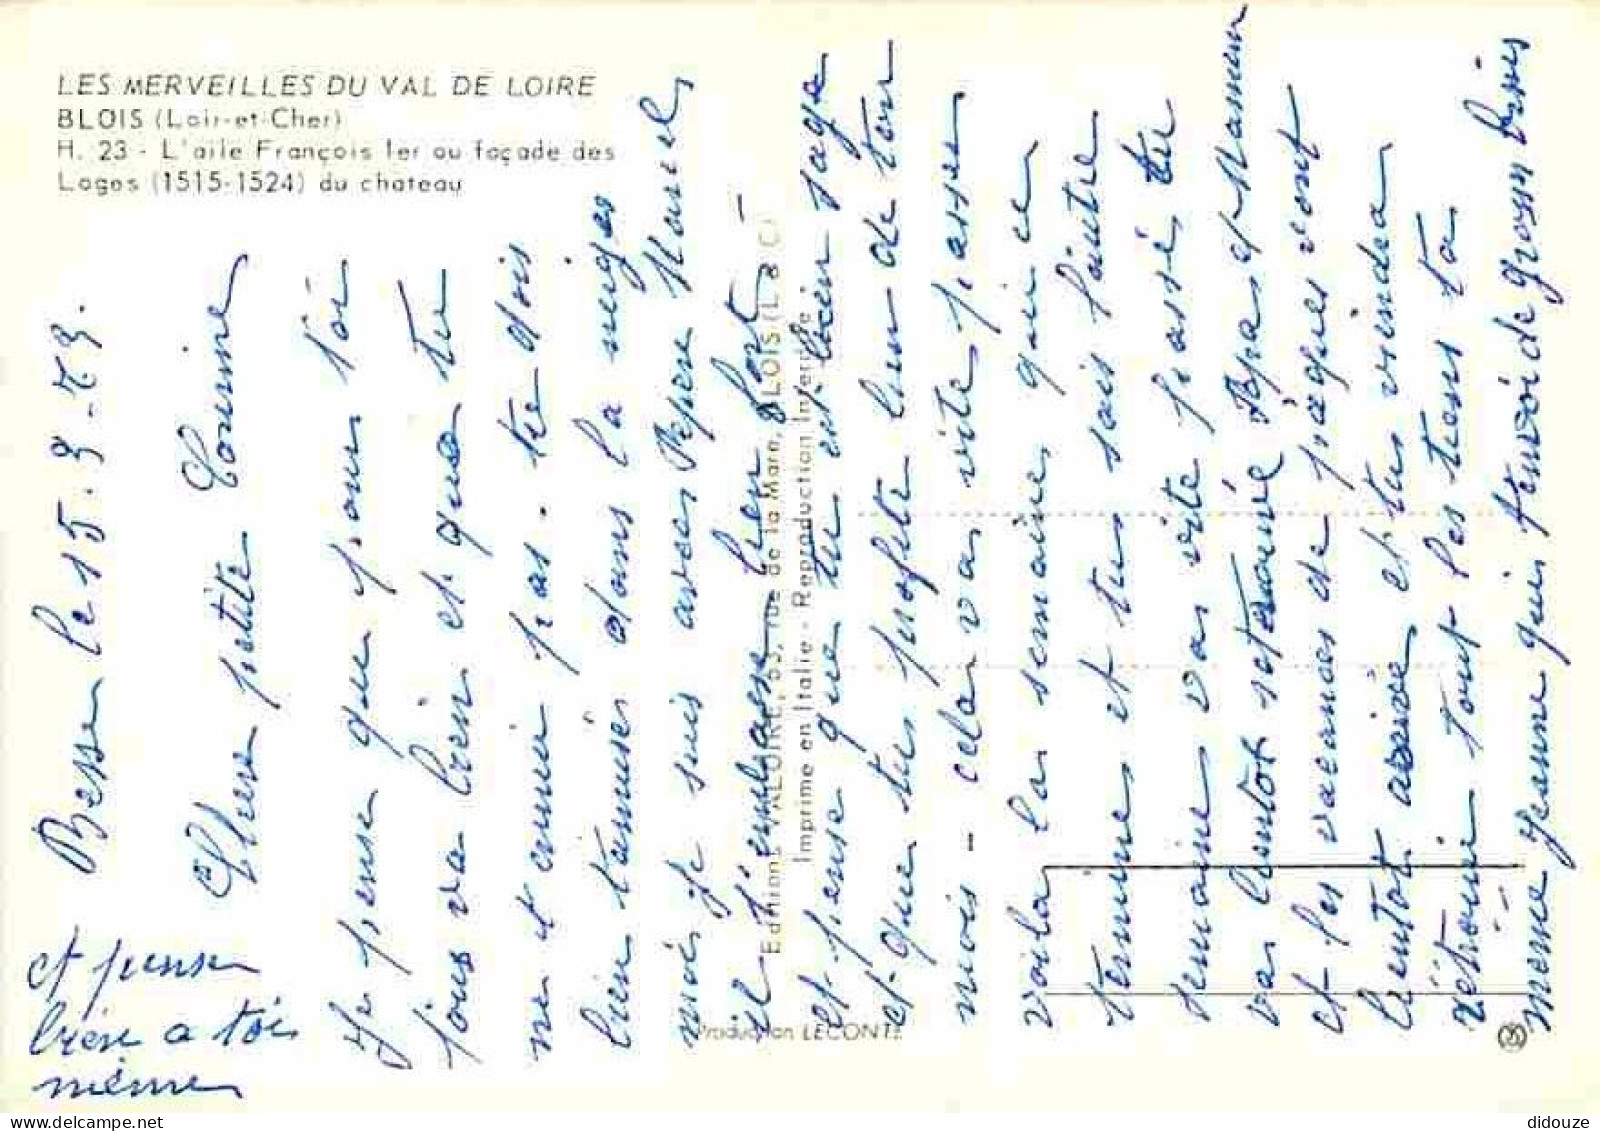 LES MERVEILLES DU VAL DE LOIRE
BLOIS (Loir-et-Cher)
H. 23 - L'aile François Ier ou façade des
Loges (1515-1524) du chateau
Besse le 15-3-73.
Chere petite Corinne
Je pense que pour toi
tous va bien et que tu
ne t'ennuie pas. te dois
bien t'amuser dans la neige
moi je suis avec Pépère Marcel
il t'embrasse bien fort -
et pense que tu est bien sage
et que tu profite bien de ton
mois - cela va vite passer
voila la semaine qui ce
termine et tu sais l'autre
semaine va vite passé, tu
va bientot retrouvé Papa et Maman
et les vacances de pâques vont
bientot arrivée et tu viendra
retrouvé tout les tiens ta
meme Jeanne qui t'envoi de gross bises
et pense
bien a toi
mémé
Editions VALOIRE, 53, rue de la Mare, BLOIS (L & C)
Imprime en Italie - Reproduction Interdite
Production LECONTE
didouze